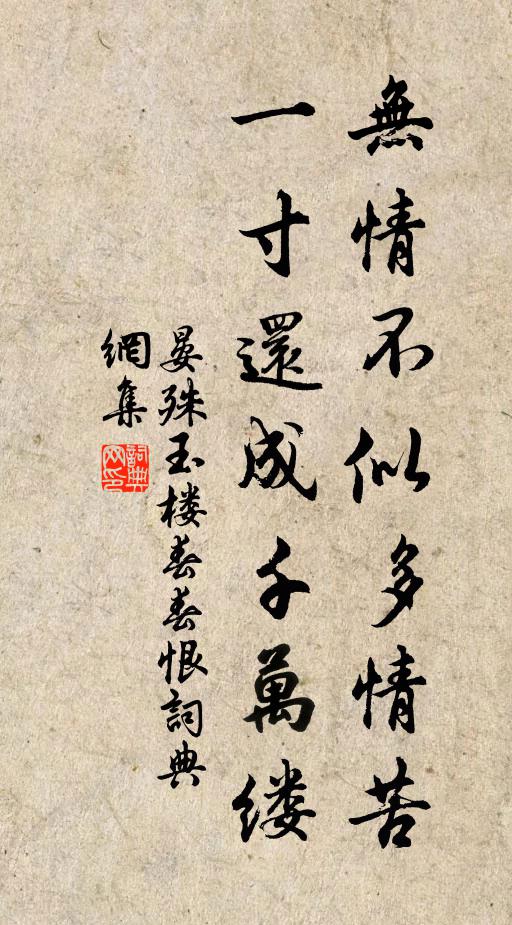 無情不似多情苦
一寸還成千萬缕
晏殊玉楼春春恨詞典
網集
詞典
网印